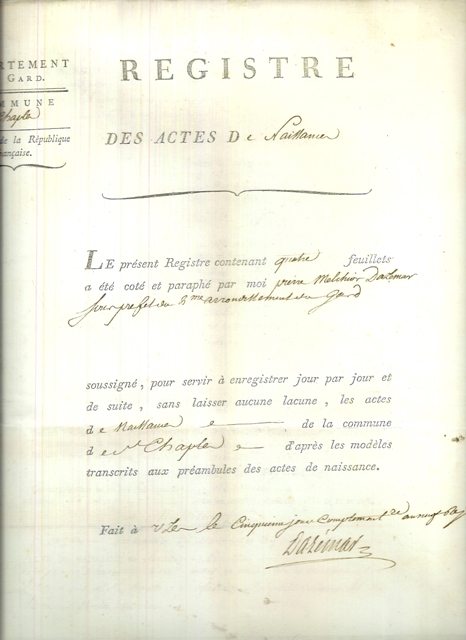 RTEMENT
GARD.
MMUNE
Chapte
de la République
nçaise.
REGISTRE
DES ACTES De Naissance
LE présent Registre contenant quatre feuillets
a été coté et paraphé par moi pierre Melchior Dalimar
sous prefet du 2me arrondissement du Gard
soussigné, pour servir à enregistrer jour par jour et
de suite, sans laisser aucune lacune, les actes
de Naissance de la commune
de St Chapte d'après les modèles
transcrits aux préambules des actes de naissance.
Fait à Uzès le Cinquieme jour Complementre an neuf